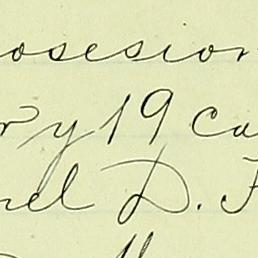 osesion
ry 19 ca
el D. F